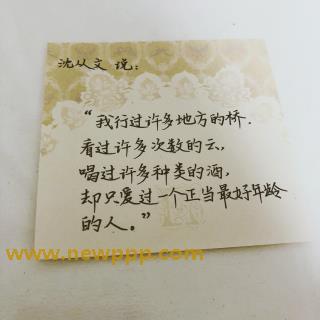 沈从文 说：
“我行过许多地方的桥．
看过许多次数的云，
唱过许多种类的酒，
却只爱过一个正当最好年龄
的人。”
www.newppp.com